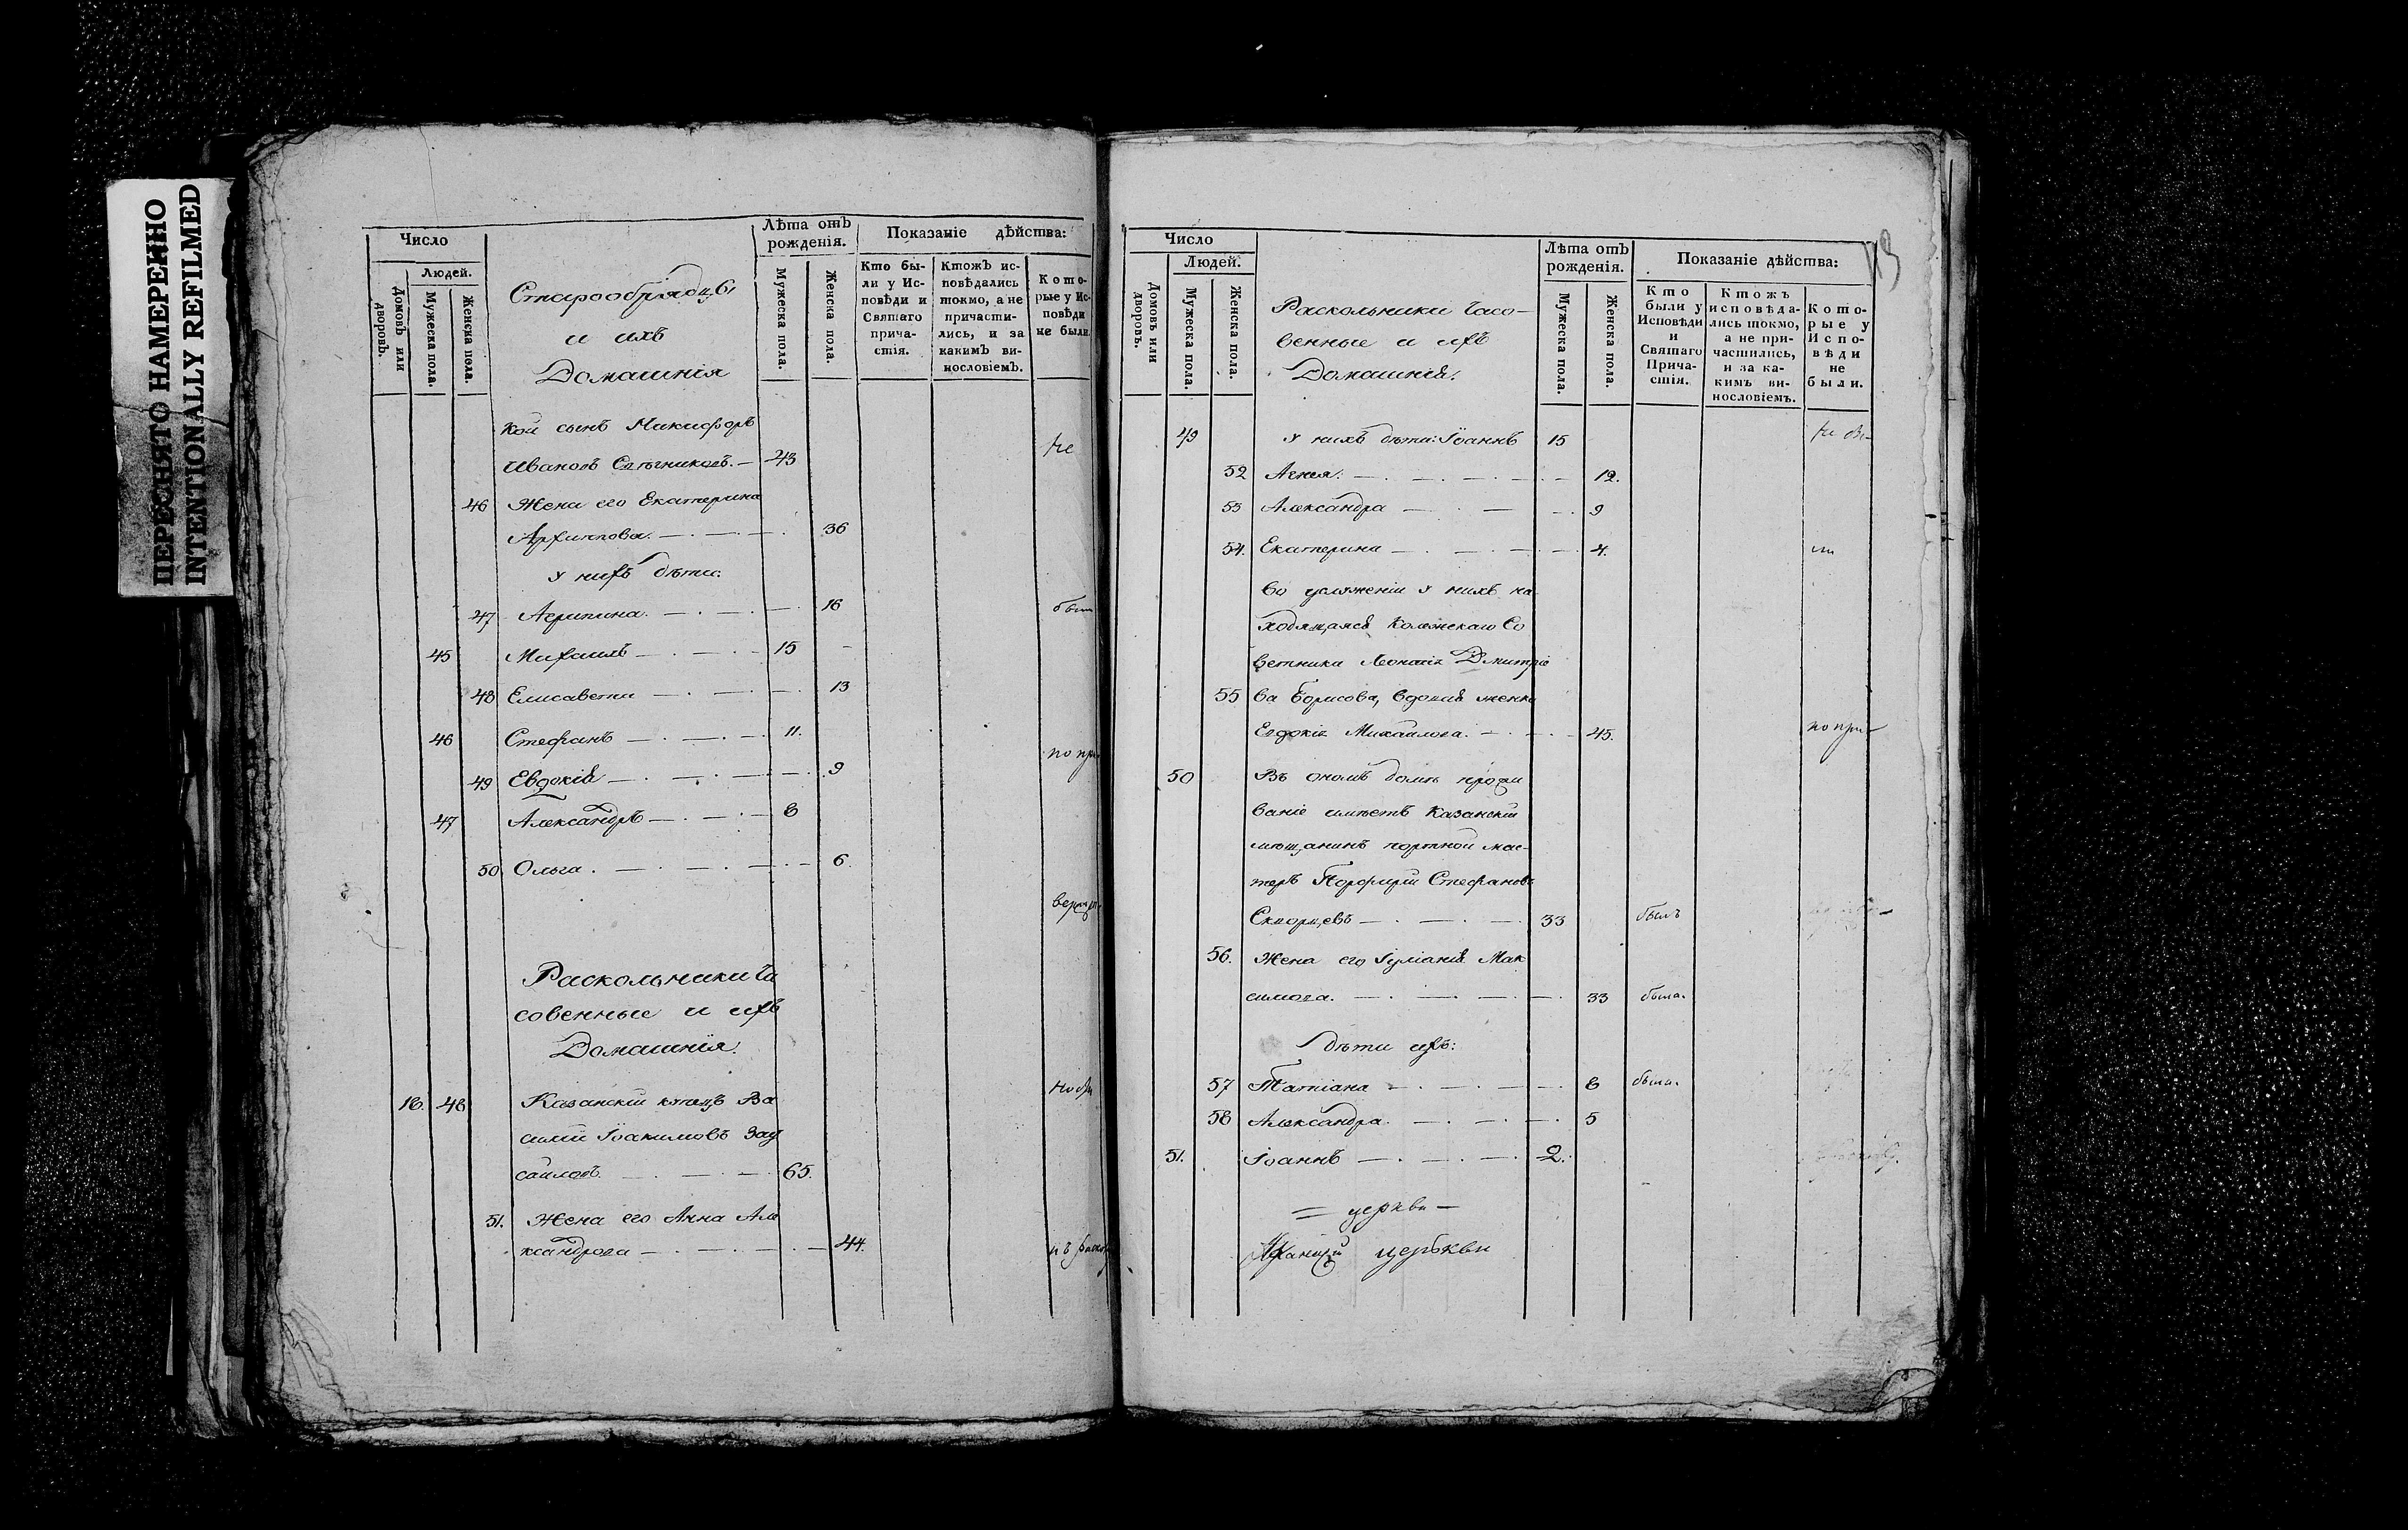 ПЕРЕСНЯТО НАМЕРЕННО
INTENTIONALLY REFILMED
Число
Людей.
Домовъ или дворовъ.
Мужеска пола.
Женска пола.
Старообрядцы
и ихъ
Домашнія
Лѣта отъ рожденія.
Мужеска пола.
Женска пола.
Показаніе дѣйства:
Кто бы-
ли у Ис-
повѣди и
Святаго
прича-
стія.
Ктожъ ис-
повѣдались
токмо, а не
причасти-
лись, и за
какимъ ви-
нословіемъ.
Кото-
рые у Ис-
повѣди
не были.
кой сынъ Никифоръ
Ивановъ 43 не
46 Жена его Екатерина
Архиппова. 36
У нихъ дѣти:
47 Агрипина. 16
45 Михаилъ 15
48 Елисавета 13
46 Стефанъ 11.
49 Евдокія 9
47 Александръ 8
50 Ольга. 6.
Раскольники Ча
совенные и ихъ
Домашнія.
16. 48 Казанскій купецъ Ва
силій Іоакимовъ Зау
саиловъ. 65.
51. Жена его Анна Але
ксандрова 44.
113
Число
Людей.
Домовъ или дворовъ.
Мужеска пола.
Женска пола.
Раскольники Часо-
венные и ихъ
Домашнія.
Лѣта отъ рожденія.
Мужеска пола.
Женска пола.
Показаніе дѣйства:
Кто
были у
Исповѣди
и
Святаго
Прича-
стія.
Ктожъ
исповѣда-
лись токмо,
а не при-
частились,
и за ка-
кимъ ви-
нословіемъ.
Кото-
рые у
Испо-
вѣди
не
были.
49 У нихъ дѣти: Іоаннъ 15
52 Агнея. 12.
53 Александра 9
54. Екатерина 4.
Во услуженіи у нихъ на
ходящаяся Колежскаго Со
вѣтника Дмитріе
55 ва Борисова, вдовая женка
Евдокія Михайлова. 45.
50 Въ ономъ домѣ прожи
ваніе имѣетъ Казанскій
мѣщанинъ портной мас-
теръ Порфирій Стефановъ
Скворцевъ 33 былъ
56. Жена его Іуліанія Мак
симова. 33 была.
Дѣти ихъ:
57 Татіана 8 была.
58 Александра. 5
51. Іоаннъ 2.
церкви
церькви